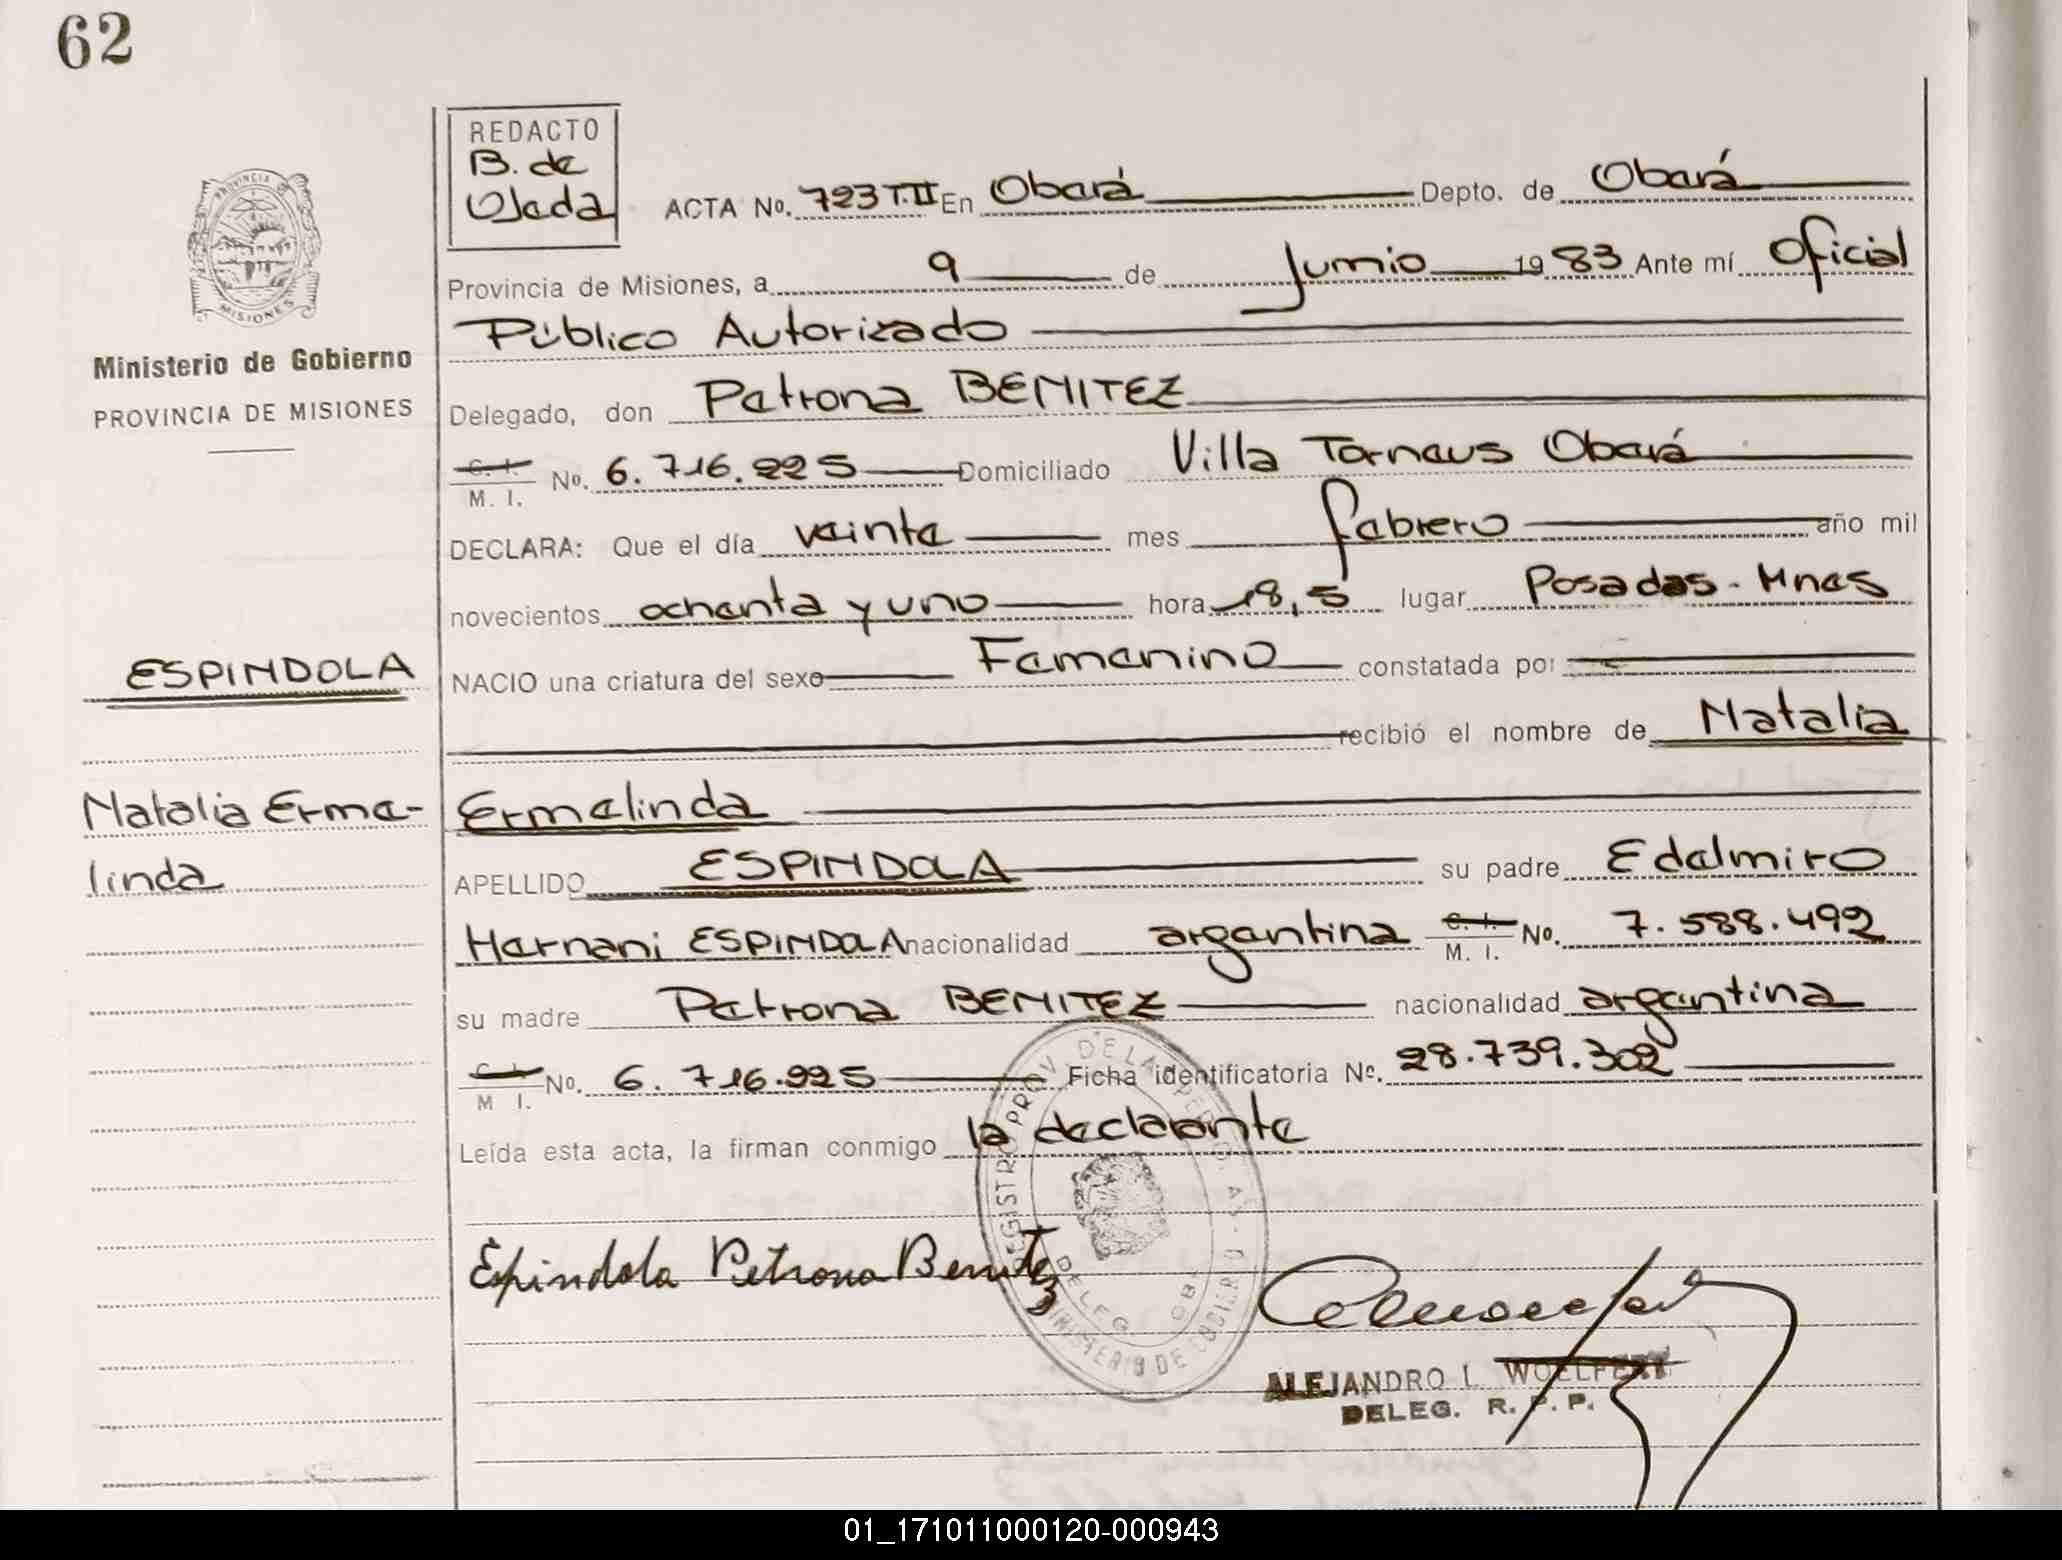 62
REDACTO
B. de
Ojeda
ACTA No. 723 T.II En Oberá Depto. de Oberá
Provincia de Misiones, a 9 de Junio 1983 Ante mí Oficial
Público Autorizado
Delegado, don Petrona BENITEZ
C. I.
M. I. No. 6.716.925 Domiciliado Villa Torneus Oberá
DECLARA: Que el día veinte mes febrero año mil
novecientos ochenta y uno hora 18,5 lugar Posadas - Mnes
NACIO una criatura del sexo Femenino constatada por
recibió el nombre de Natalia
Ermelinda
APELLIDO ESPINDOLA su padre Edelmiro
Hernani ESPINDOLA nacionalidad argentina C. I.
M. I. No. 7.588.492
su madre Petrona BENITEZ nacionalidad argentina
C. I.
M I. No. 6.716.925 Ficha identificatoria No. 28.739.302
Leída esta acta, la firman conmigo la declarante
Espindola Petrona Benitez
ALEJANDRO L. WOELFERT
DELEG. R. P. P.
PROVINCIA
MISIONES
Ministerio de Gobierno
PROVINCIA DE MISIONES
ESPINDOLA
Natalia Erme-
linda
REGISTRO PROV. DE LAS PERSONAS
MINISTERIO DE GOBIERNO
DELEG. OBERA
01_171011000120-000943